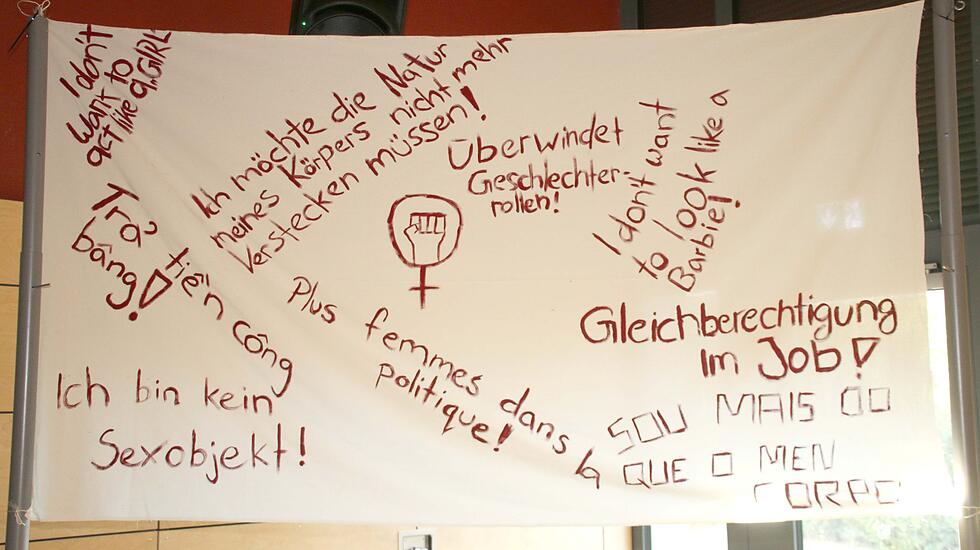 I don't
want to
act like a GIRL
Ich möchte die Natur
meines Körpers nicht mehr
verstecken müssen!
Überwindet
Geschlechter-
rollen!
I dont want
to look like a
Barbie!
Trả tiền công
bằng!
Plus femmes dans
politique!
Gleichberechtigung
im Job!
Ich bin kein
Sexobjekt!
SOU MAIS DO
QUE O MEN
CORPO